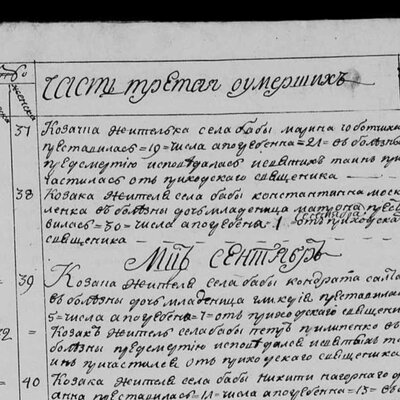 часть третая оумершихъ
женска
37 Козачка жителька села бабы марина
преставилась =19= числа апогребенна =21= въ болезны
предсмертію исповѣдалась исвятихъ таинъ при
частилась отъ приходскаго священника
38 Козака жителя села бабы константина моска
ленка въ болѣзны дочь младеница матрона прес
вилась =30= числа апогребенна 1 сентября отъ приходскаго
священника
Мцъ сентябрь
39 Козака жителя села бабы кондрата
въ болѣзны дочь младеница гликерія преставила
5= числа апогребенна =7= отъ приходскаго священни
Козакъ житель села бабы петръ пилипенко въ
болѣзны предсмертію исповѣдался исвятихъ та
инъ причастился отъ приходскаго священника
40 Козака жителя села бабы никити нагорнаго
анна преставилась числа апогребенна =13= въ